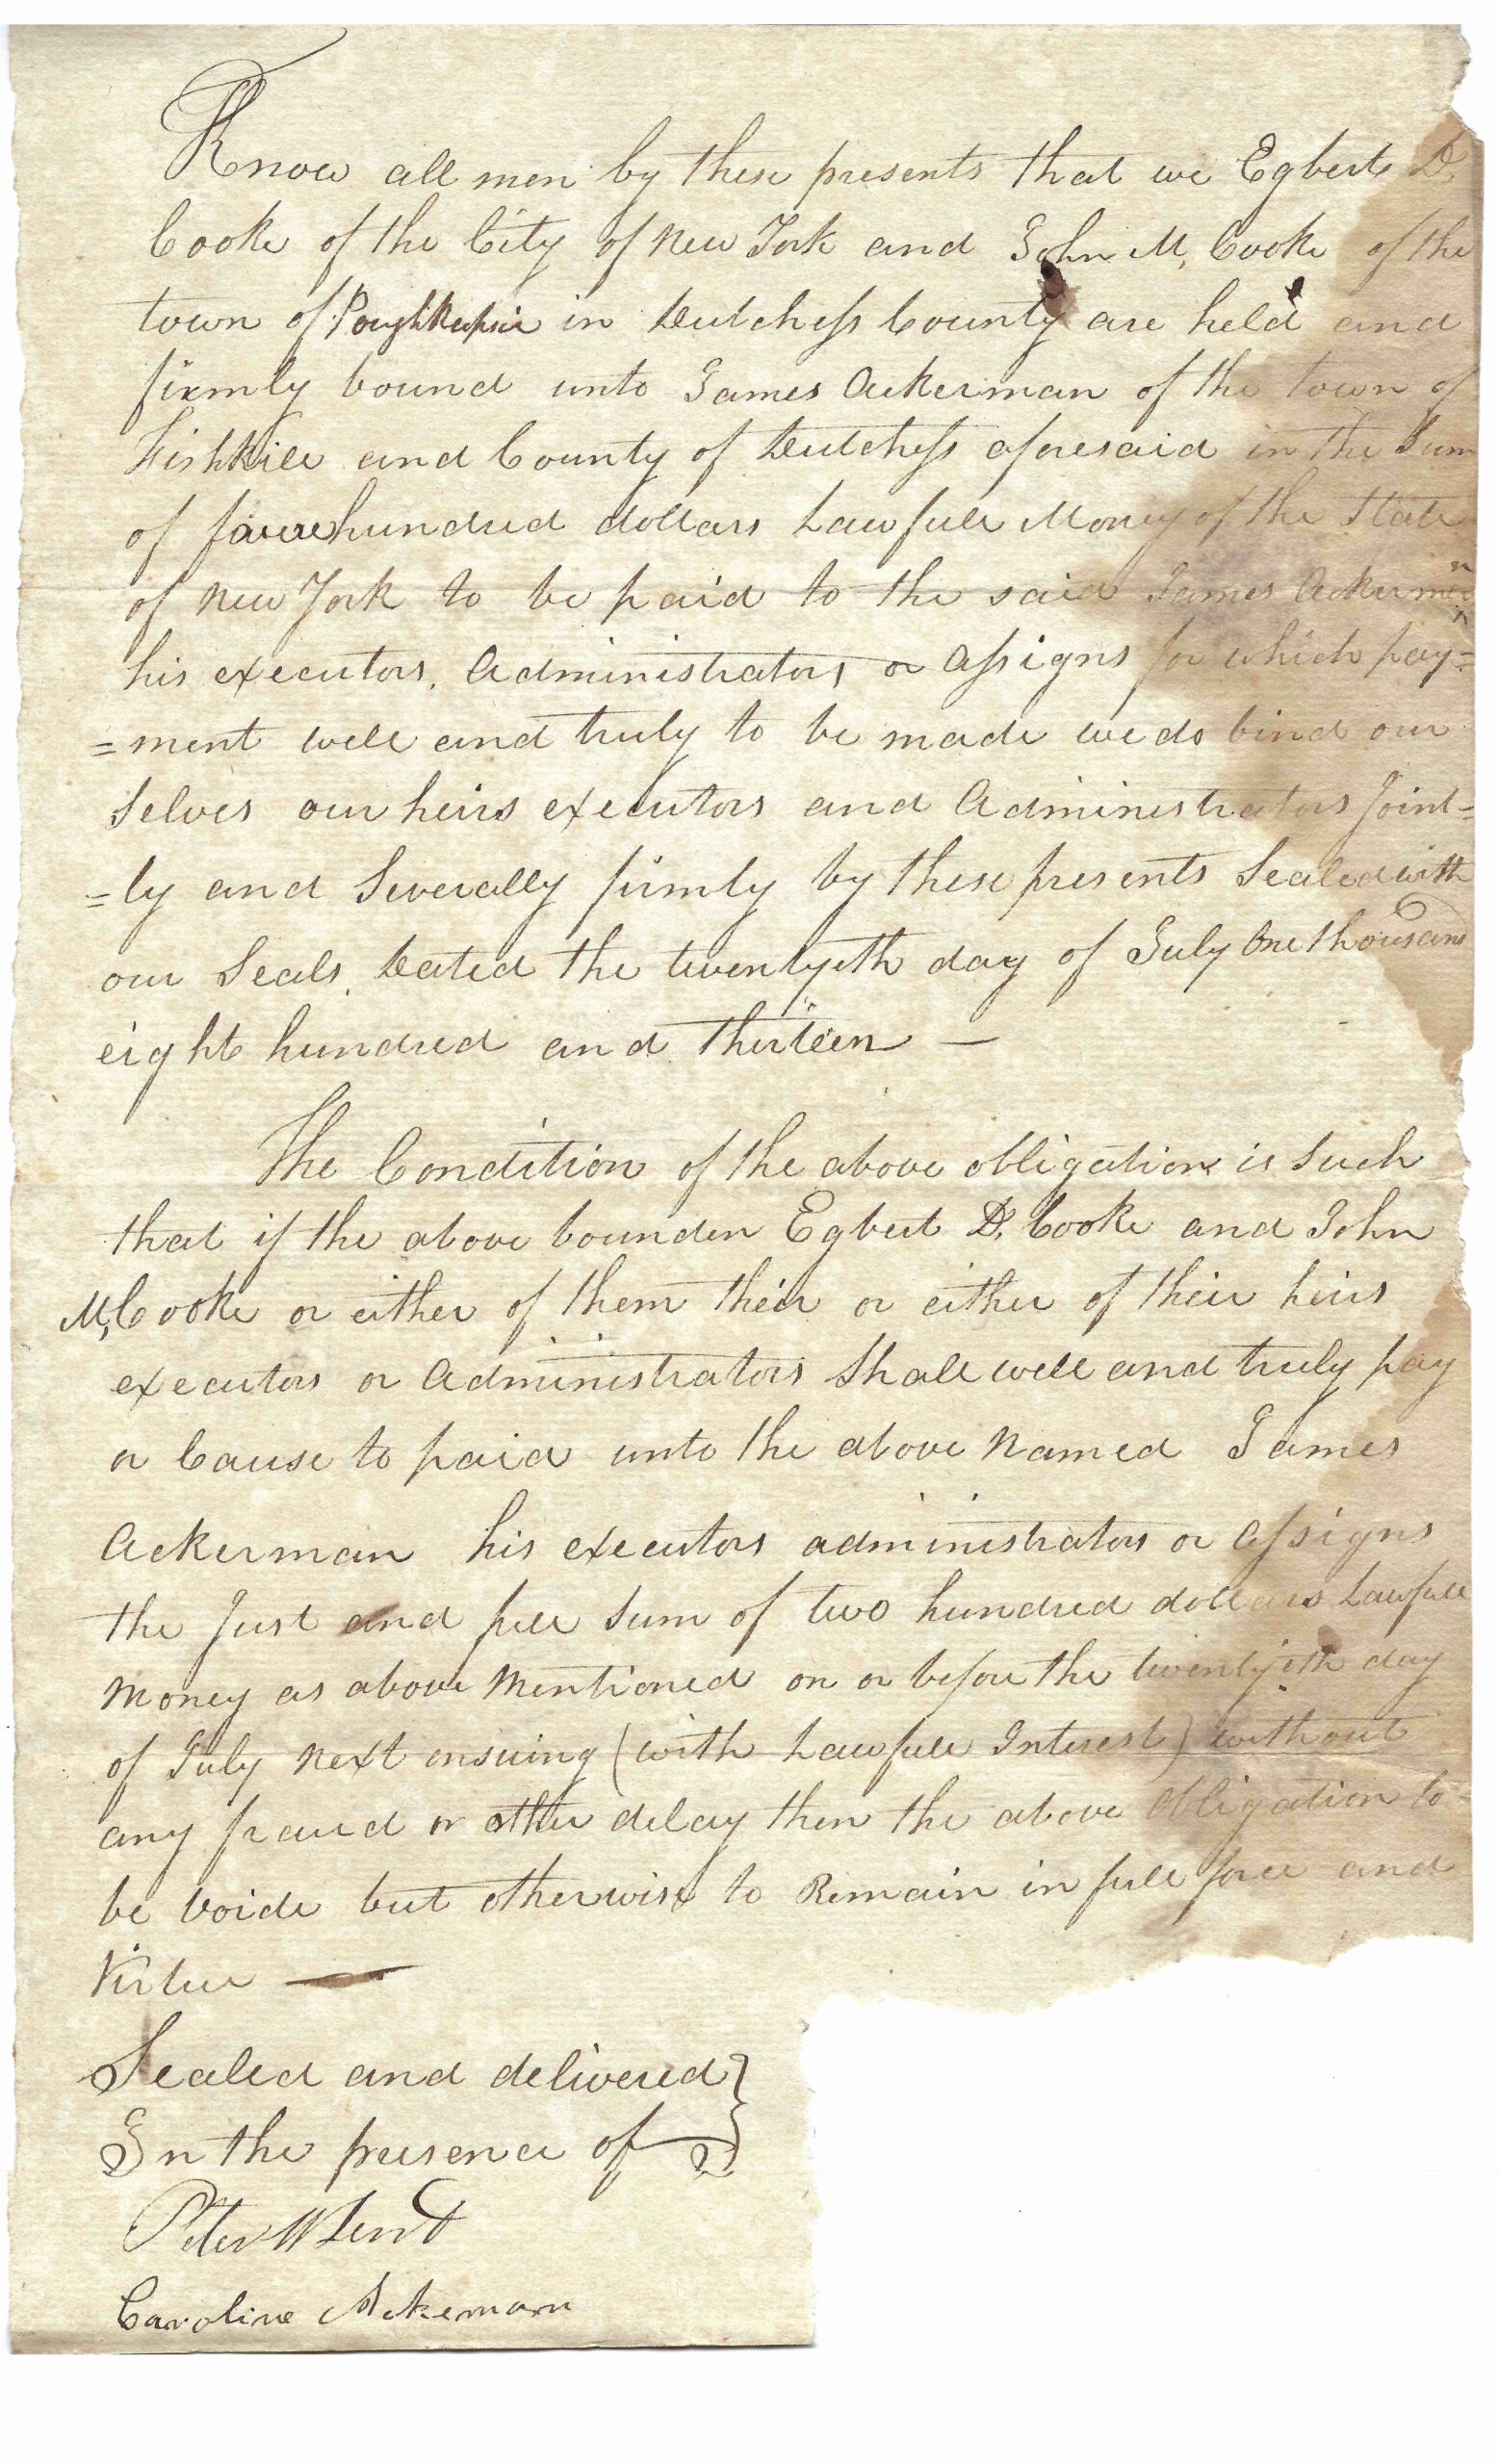 Know all men by these presents that we Egbert D.
Cooke of the City of New York and John M. Cooke of the
town of Poughkeepsie in Dutchess County are held and
firmly bound unto James Ackerman of the town of
Fishkill and County of Dutchess aforesaid in the Sum
of four hundred dollars Lawfull Money of the State
of New York to be paid to the said James Ackerman
his executors, Administrators or Assigns for which pay=
=ment well and truly to be made we do bind our
Selves our heirs executors and Administrators Joint=
=ly and Severally firmly by these presents Sealed with
our Seals. Dated the twentyeth day of July One thousand
eight hundred and thirteen —
The Condition of the above obligation is Such
that if the above bounden Egbert D. Cooke and John
M. Cooke or either of them their or either of their heirs
executors or Administrators Shall well and truly pay
or Cause to paid unto the above Named James
Ackerman his executors administrators or Assigns
the Just and full Sum of two hundred dollars Lawfull
Money as above Mentioned on or before the twentyeth day
of July Next ensuing (with Lawfull Interest) without
any fraud or other delay then the above Obligation to
be Voide but otherwise to Remain in full force and
Virtue —
Sealed and delivered }
In the presence of }
Peter W Lent
Caroline Ackemann